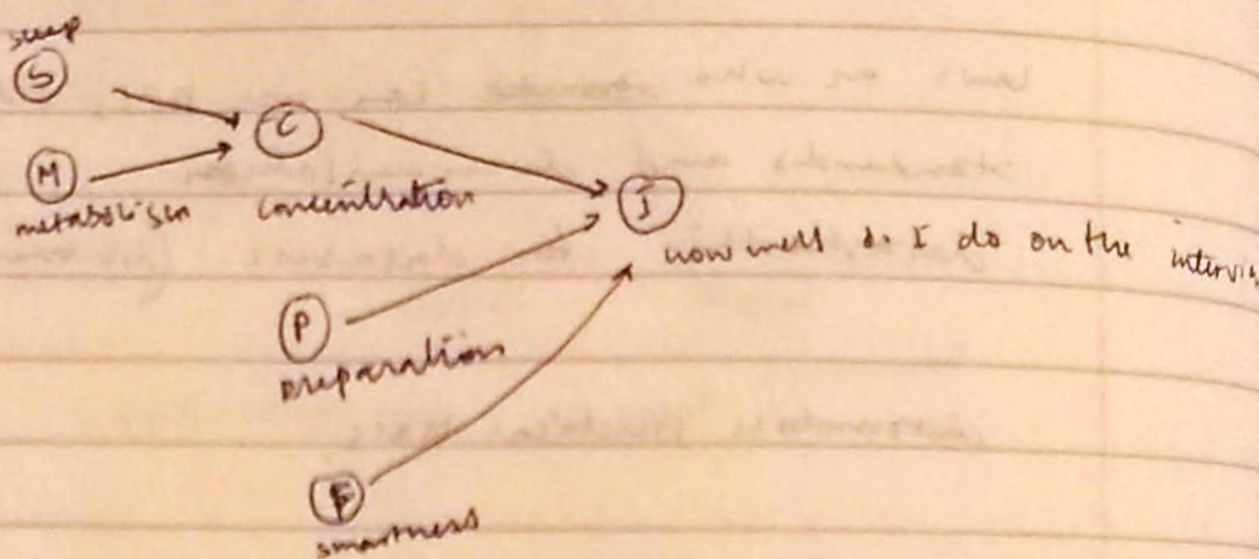 sleep
S
C
M
metabolism
concentration
I
how well do I do on the interview
P
preparation
F
smartness